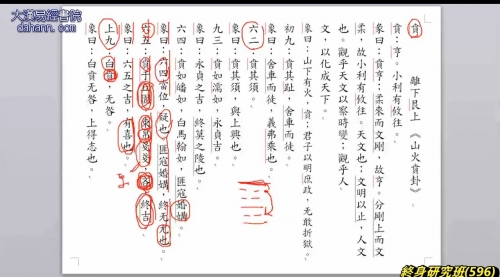 大漢易經書院
dahann.com
賁 離下艮上《山火賁卦》
賁：亨。小利有攸往。
彖曰：賁亨；柔來而文剛，故亨。分剛上而文
柔，故小利有攸往。天文也；文明以止，人文
也。觀乎天文以察時變；觀乎人
文，以化成天下。
象曰：山下有火，賁；君子以明庶政，无敢折獄。
初九：賁其趾，舍車而徒。
象曰：舍車而徒，義弗乘也。
六二：賁其須。
象曰：賁其須，與上興也。
九三：賁如濡如，永貞吉。
象曰：永貞之吉，終莫之陵也。
六四：賁如皤如，白馬翰如，匪寇婚媾。
象曰：六四當位，疑也。匪寇婚媾，終无尤也。
六五：賁于丘園，束帛戔戔，吝，終吉。
象曰：六五之吉，有喜也。
上九：白賁，无咎。
象曰：白賁无咎，上得志也。
終身研究班(596)